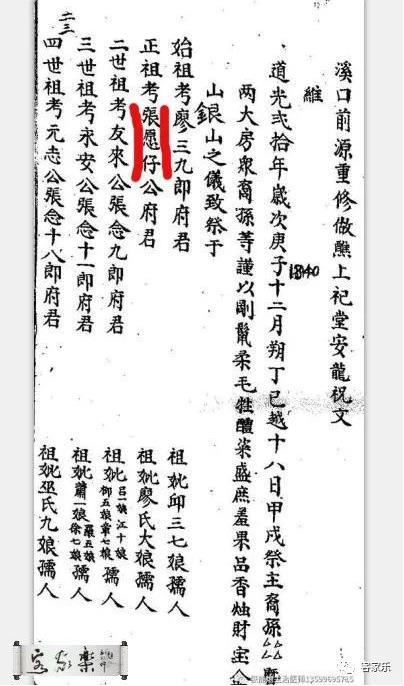 溪口前源重修做醮上祀堂安龍祝文
維
道光弍拾年歲次庚子十二月朔丁巳越十八日甲戌祭主裔孫
1840
两大房衆裔孫等謹以剛鬣柔毛牲醴粢盛庶羞果品香烛財宝金
山銀山之儀致祭于
始祖考廖三九郎府君 祖妣邱三七娘孺人
正祖考張愿仔公府君 祖妣廖氏大娘孺人
二世祖考友來公張念九郎府君 祖妣吕一娘江十娘柳五娘章七娘孺人
三世祖考永安公張念十一郎府君 祖妣蕭一娘羅五娘徐七娘孺人
四世祖考元志公張念十八郎府君 祖妣巫氏九娘孺人
二三
客家樂
客家乐